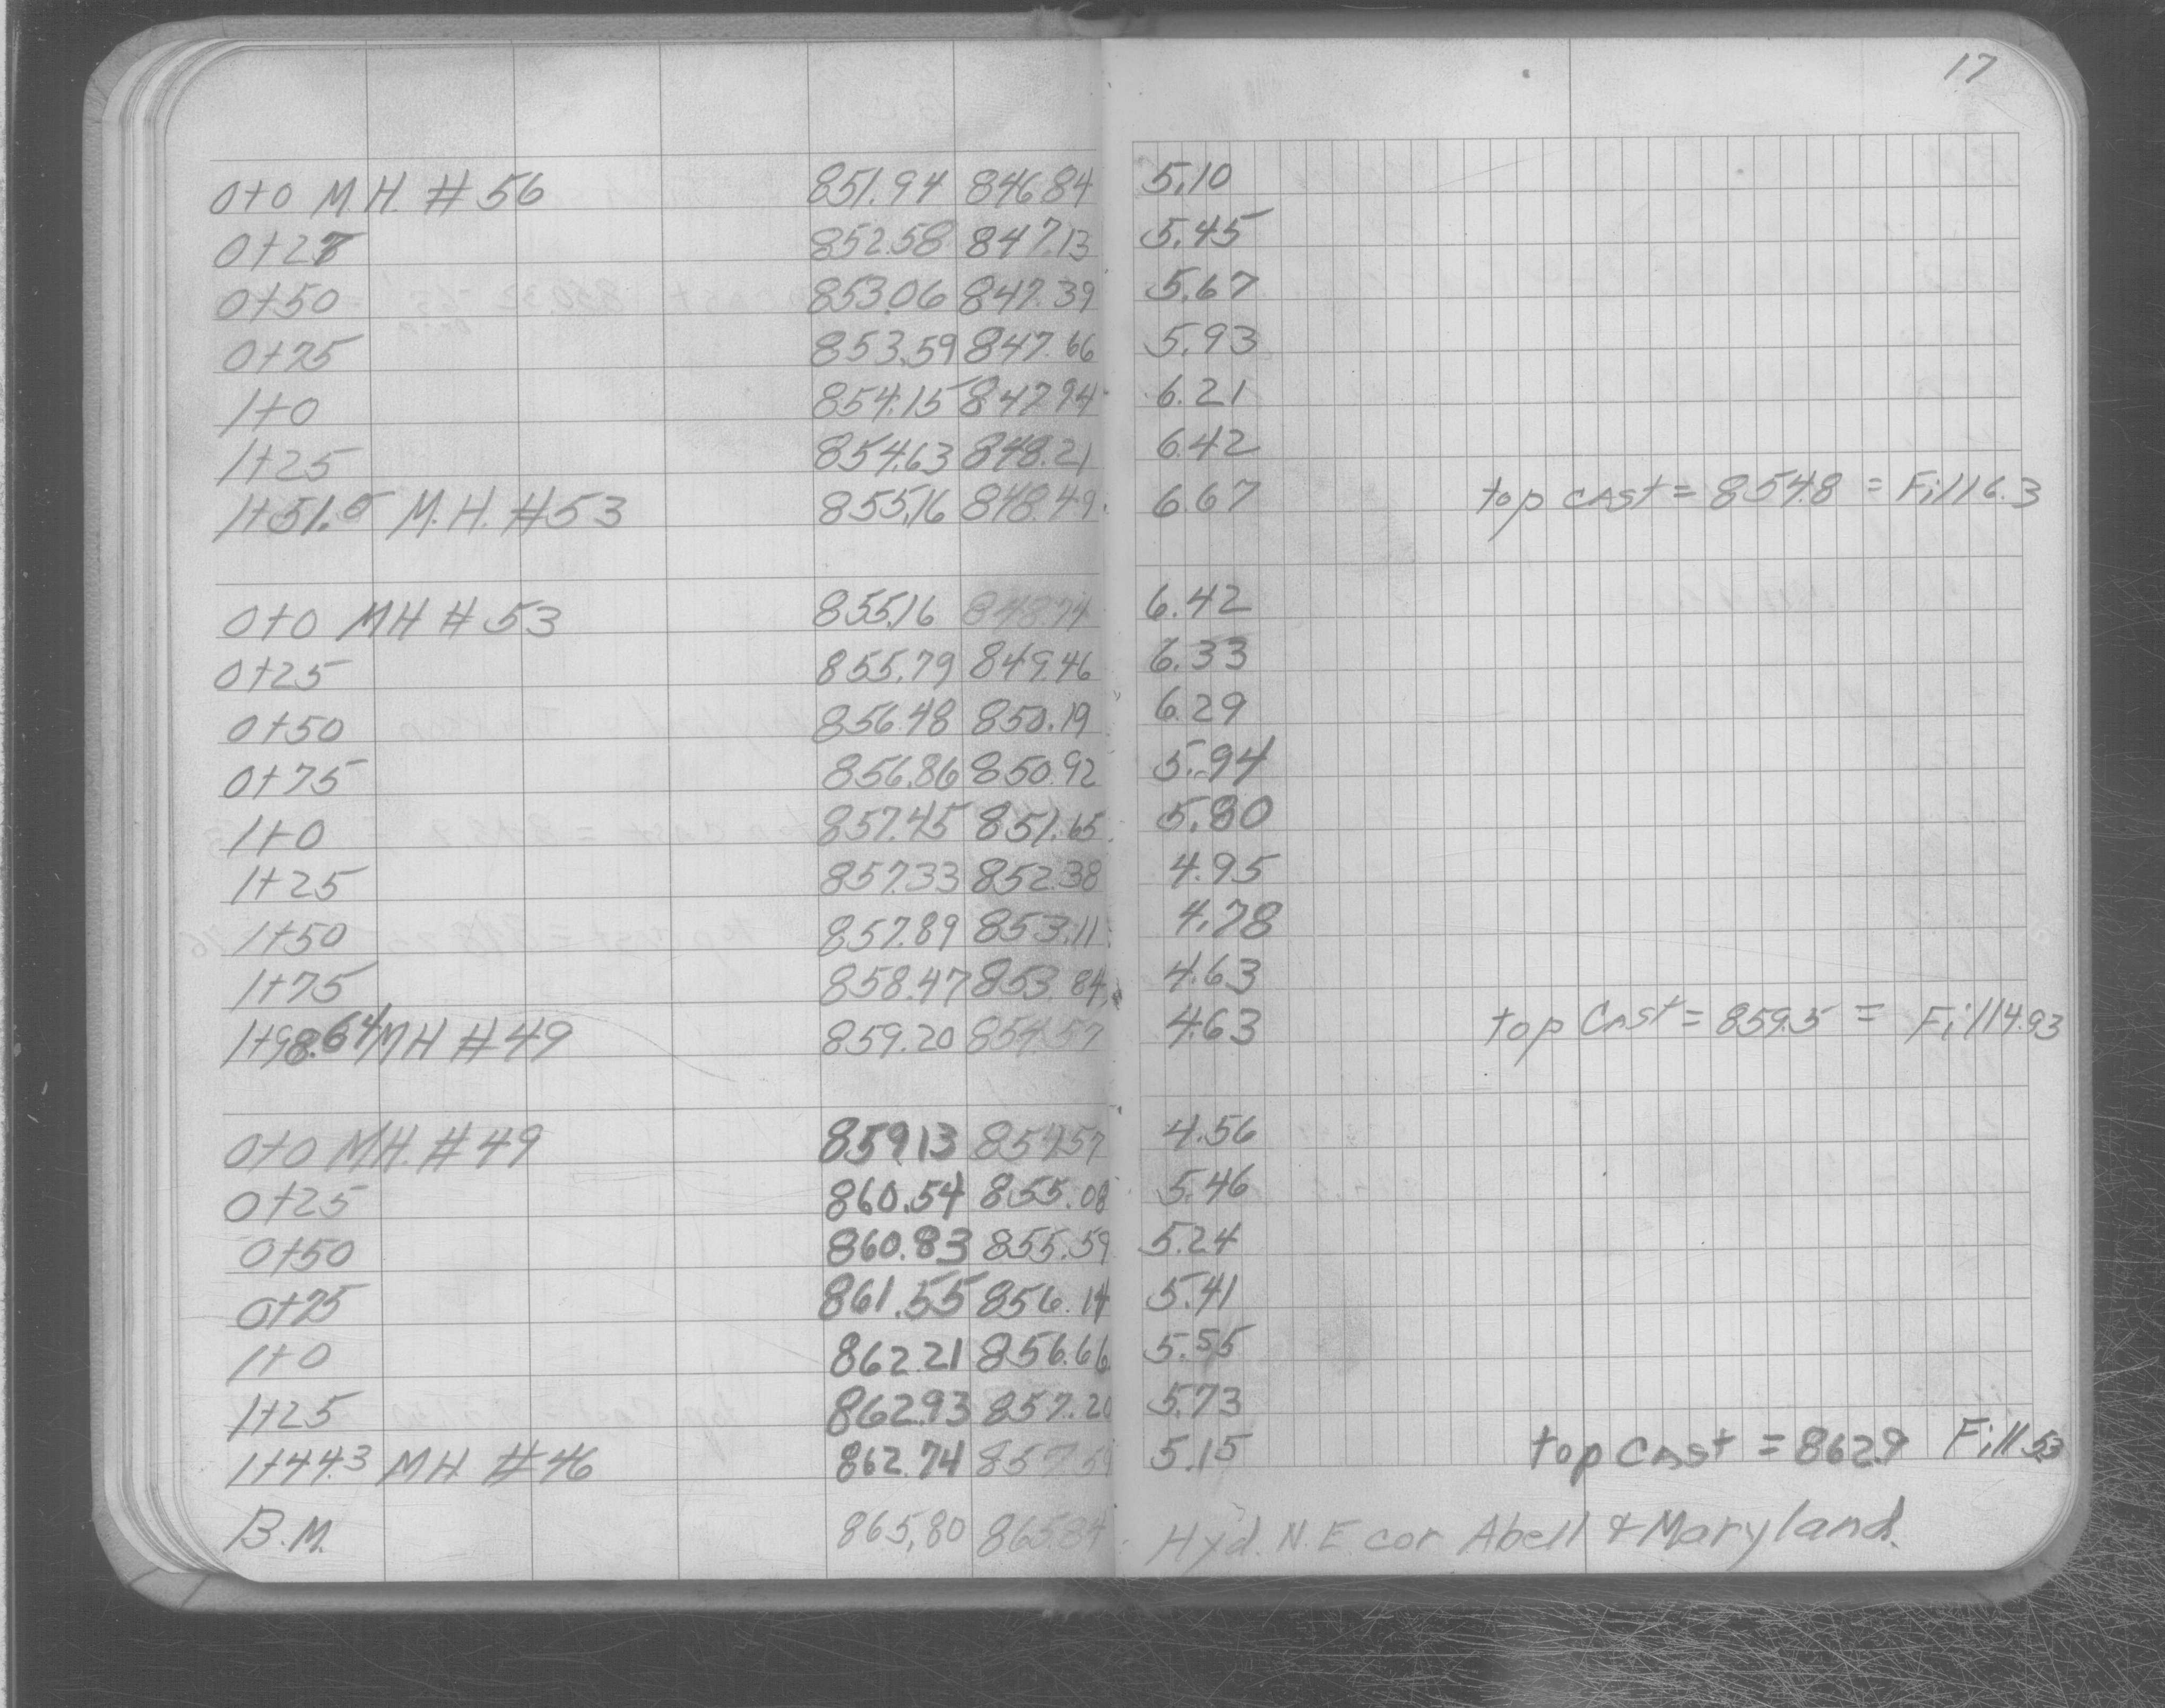 17
0+0 M.H. # 56 851.94 846.84 5.10
0+27 852.58 847.13 5.45
0+50 853.06 847.39 5.67
0+75 853.59 847.66 5.93
1+0 854.15 847.94 6.21
1+25 854.63 848.21 6.42
1+51.5 M.H. #53 855.16 848.49 6.67 top cast = 854.8 = Fill 6.3
0+0 MH # 53 855.16 848.74 6.42
0+25 855.79 849.46 6.33
0+50 856.48 850.19 6.29
0+75 856.86 850.92 5.94
1+0 857.45 851.65 5.80
1+25 857.33 852.38 4.95
1+50 857.89 853.11 4.78
1+75 858.47 853.84 4.63
1+98.64 MH #49 859.20 854.57 4.63 top Cast = 859.5 = Fill 4.93
0+0 MH. #49 859.13 854.57 4.56
0+25 860.54 855.08 5.46
0+50 860.83 855.59 5.24
0+75 861.55 856.14 5.41
1+0 862.21 856.66 5.55
1+25 862.93 857.20 5.73
1+44.3 MH #46 862.74 857.59 5.15 top Cast = 862.9 Fill 5.3
B.M. 865.80 865.84 Hyd. N.E. cor Abell & Maryland.